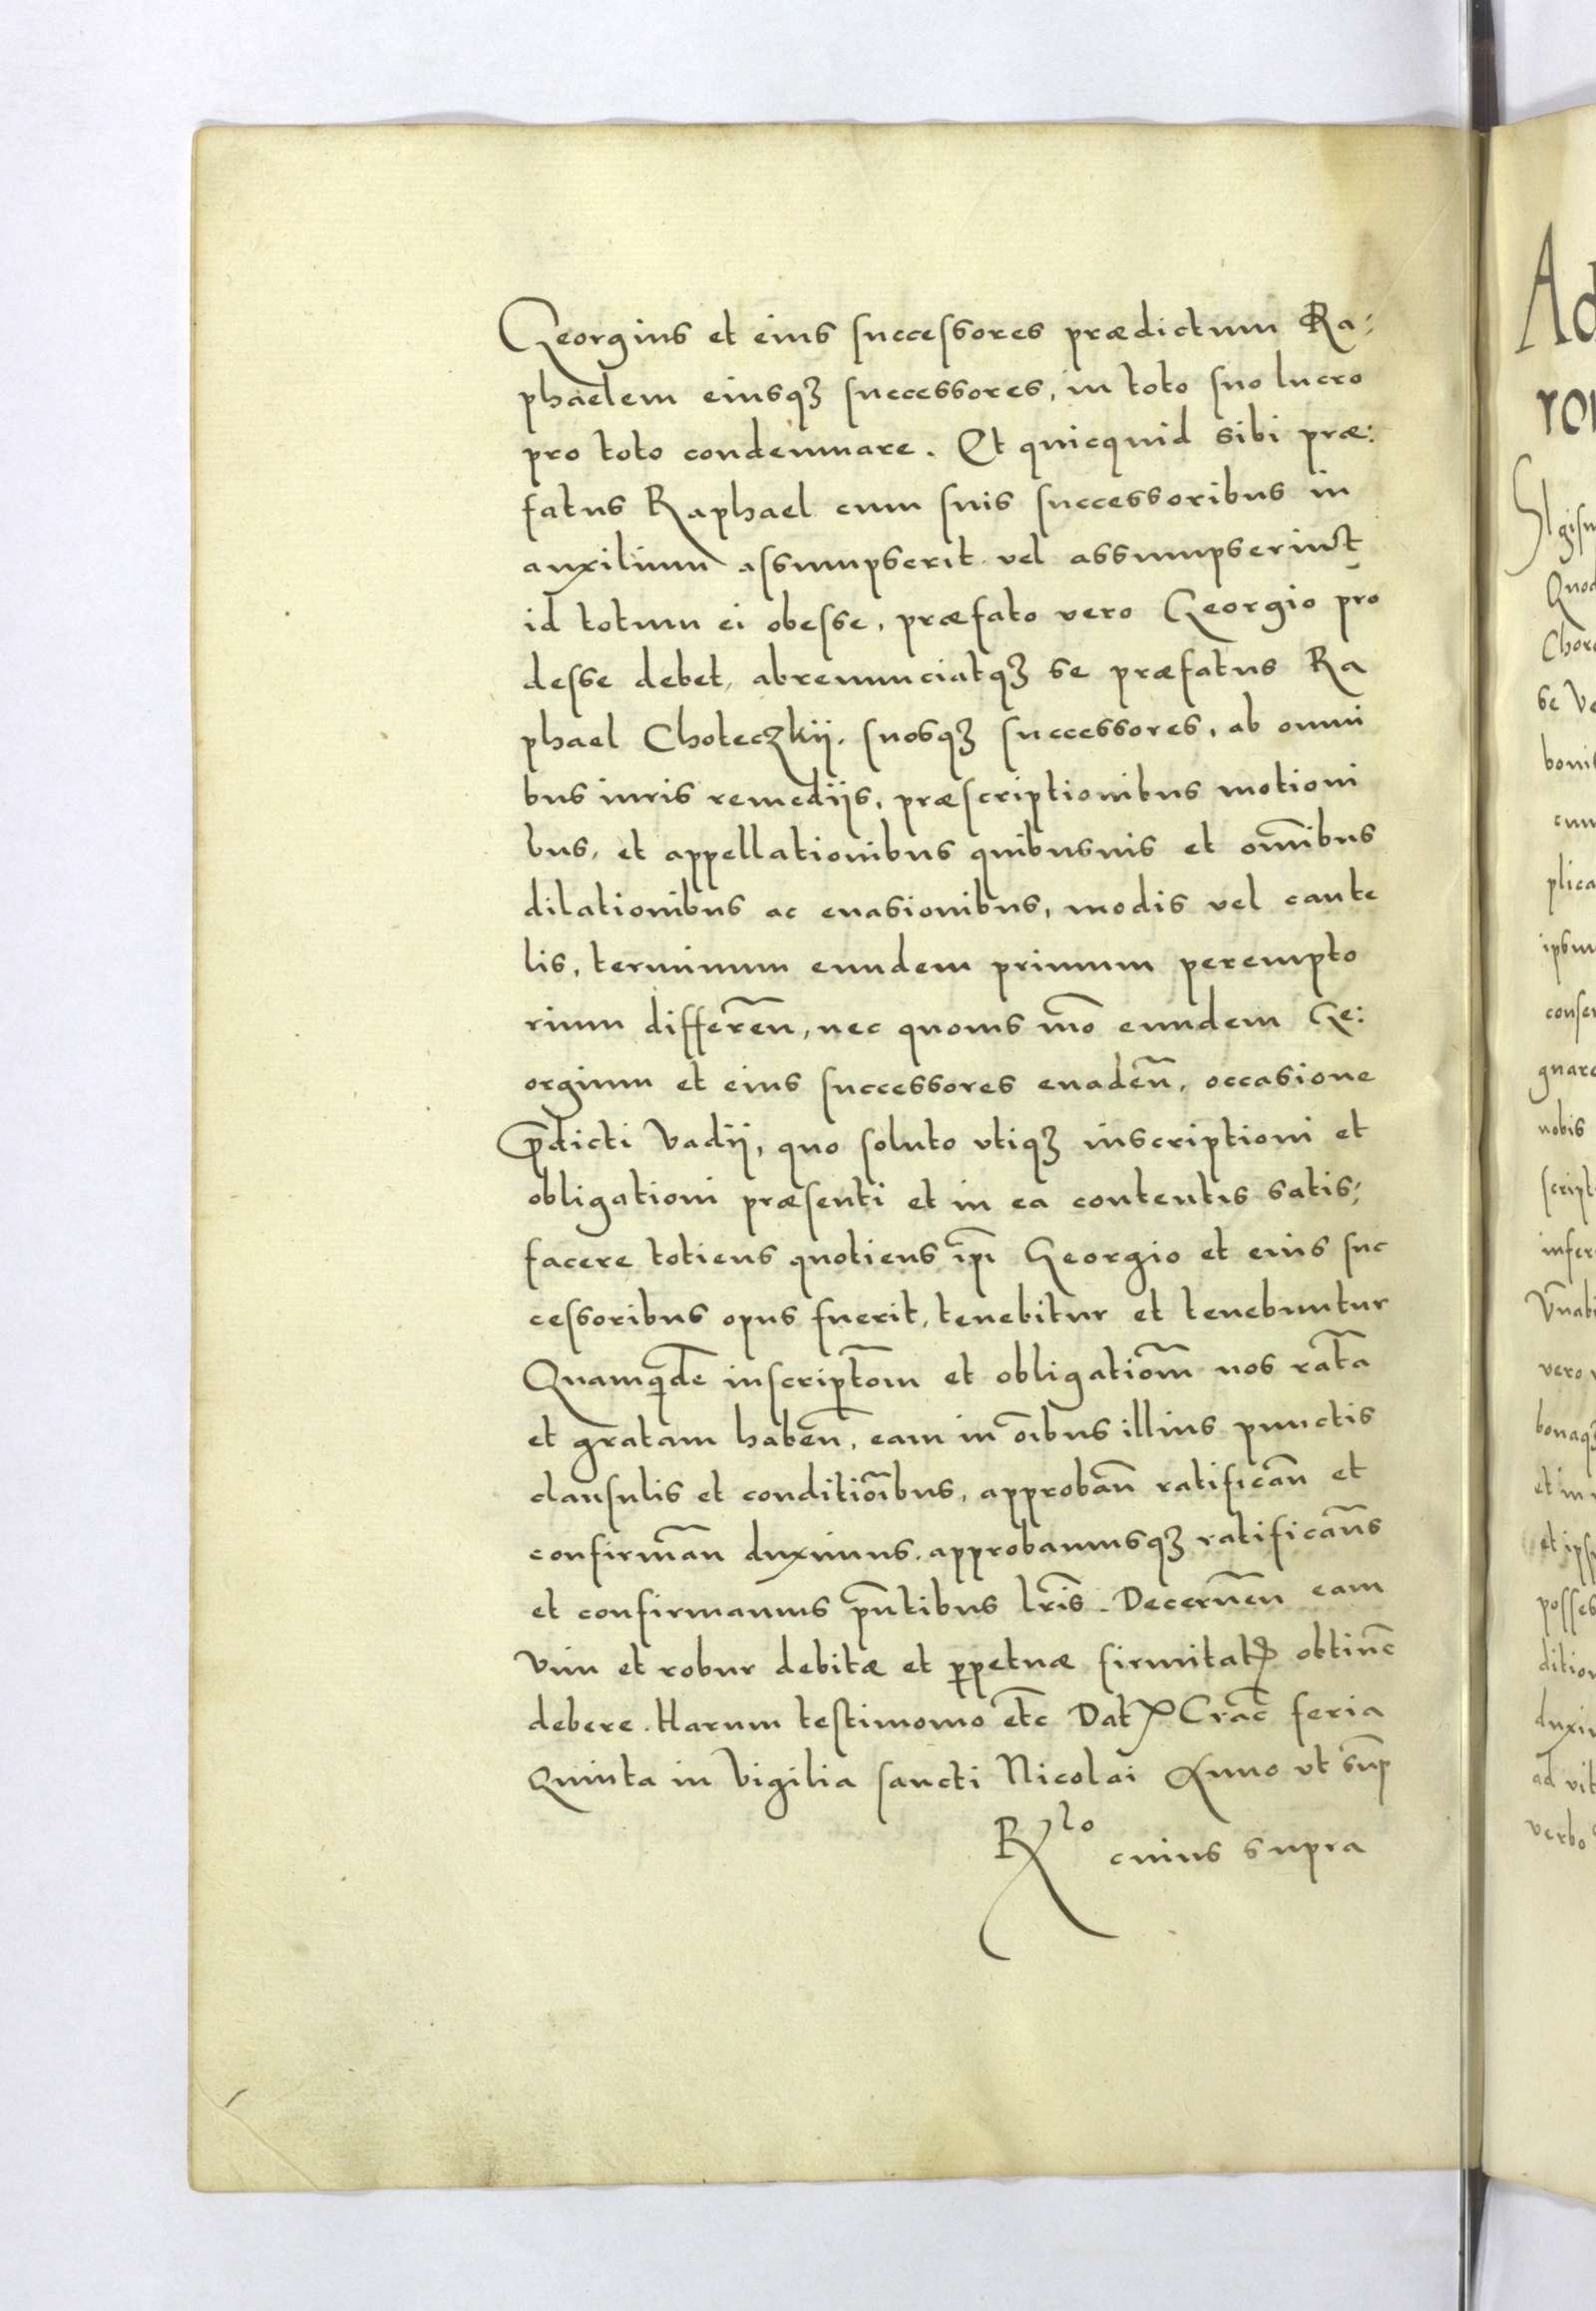 Georgius et eius successores prædictum Ra:
phaelem eiusqꝫ successores, in toto suo lucro
pro toto condemnare. Et quicquid sibi præ:
fatus Raphael cum suis successoribus in
auxilium assumpserit vel assumpserint
id totum ei obesse, præfato vero Georgio pro
desse debet, abrenunciatqꝫ se præfatus Ra
phael Choteczkij. suosqꝫ successores, ab omni
bus iuris remedijs, præscriptionibus motioni
bus, et appellationibus quibusuis et om̄ibus
dilationibus ac euasionibus, modis vel caute
lis, terminum eundem primum perempto
rium differeñ, nec quouis mō eundem Ge:
orgium et eius successores euadeñ, occasione
p̄dicti Vadij, quo soluto vtiqꝫ inscriptioni et
obligationi præsenti et in ea contentis satis:
facere totiens quotiens ip̄i Georgio et eius suc
cessoribus opus fuerit, tenebitur et tenebuntur
Quamq̄dē inscript̄om et obligatiom̄ nos rat̄a
et gratam habeñ, eam in oībus illius punctis
clausulis et conditiōibus, approbañ ratificañ et
confirmañ duximus. approbamusqꝫ ratificam̄s
et confirmamus p̄ntibus lr̄is. Decerneñ eam
Vim et robur debitæ et ꝑpetuæ firmitatꝭ obtin̄e
debere. Harum testimonio etc̄ Datꝭ Crac̄ feria
Quinta in Vigilia sancti Nicolai Anno vt sup̄
R lo cuius supra
Ad
ror
Sigism
Quod
Chor
se Ve
boni
cum
plica
ipsum
conser
gnare
nobis
script
infer
Vn̄abi
vero
bonaqꝫ
et in
et ips
posses
dition
duxim
ad vit
verbo